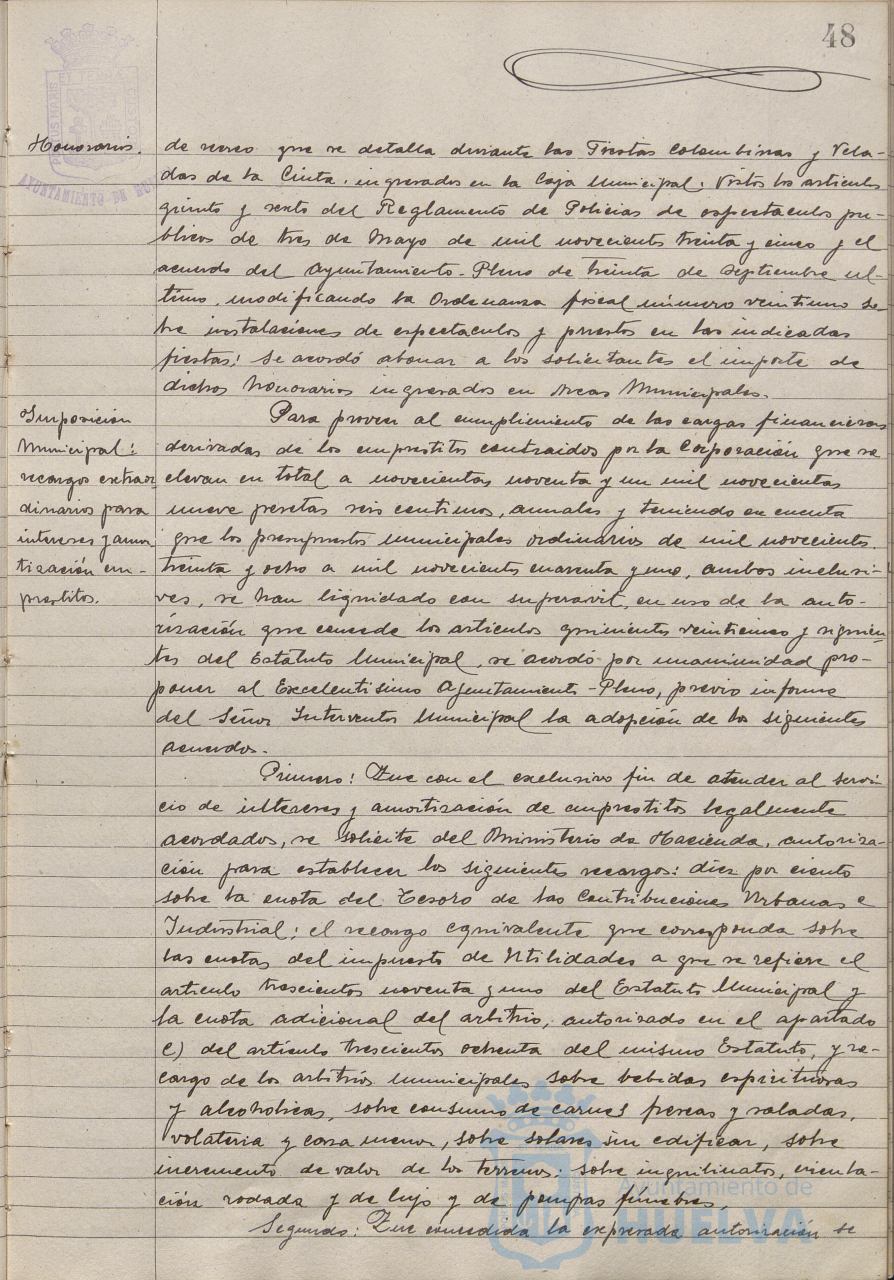 48
Honorarios.
de recreo que se detalla durante las Fiestas Colombinas y Vela-
das de la Cinta, ingresados en la Caja Municipal: Vistos los articulos
quinto y sexto del Reglamento de Policias de espectaculos pu-
blicos de tres de Mayo de mil novecientos treinta y cinco y el
acuerdo del Ayuntamiento-Pleno de treinta de septiembre ul-
timo, modificando la Ordenanza fiscal número veintiuno so-
bre instalaciones de espectaculos y puestos en las indicadas
fiestas: se acordó abonar a los solicitantes el importe de
dichos honorarios ingresados en Arcas Municipales.
Imposición
Municipal:
recargos extraor
dinarios para
intereses y amor
tización em-
prestitos.
Para proveer al cumplimiento de las cargas financieras
derivadas de los emprestitos contraidos por la Corporación que se
elevan en total a novecientas noventa y un mil novecientas
nueve pesetas seis centimos, anuales y teniendo en cuenta
que los presupuestos municipales ordinarios de mil novecientos
treinta y ocho a mil novecientos cuarenta y uno, ambos inclusi-
ves, se han liquidado con superavit, en uso de la auto-
rización que concede los articulos quinientos veinticinco y siguien-
tes del Estatuto Municipal, se acordó por unanimidad pro-
poner al Excelentisimo Ayuntamiento-Pleno, previo informe
del Señor Interventor Municipal la adopción de los siguientes
acuerdos.
Primero: Que con el exclusivo fin de atender al servi-
cio de intereses y amortización de emprestitos legalmente
acordados, se solicite del Ministerio de Hacienda, autoriza-
ción para establecer los siguientes recargos: diez por ciento
sobre la cuota del Tesoro de las Contribuciones Urbanas e
Industrial; el recargo equivalente que corresponda sobre
las cuotas del impuesto de Utilidades a que se refiere el
articulo trescientos noventa y uno del Estatuto Municipal y
la cuota adicional del arbitrio, autorizado en el apartado
C) del articulo trescientos ochenta del mismo Estatuto, y re-
cargo de los arbitrios municipales sobre bebidas espirituosas
y alcoholicas, sobre consumo de carnes frescas y saladas,
volateria y caza menor, sobre solares sin edificar, sobre
incremento de valor de los terrenos; sobre inquilinatos, circula-
ción rodada y de lujo y de pompas fúnebres.
Segundo: Que concedida la expresada autorización se
AYUNTAMIENTO DE HUELVA
Ayuntamiento de
HUELVA